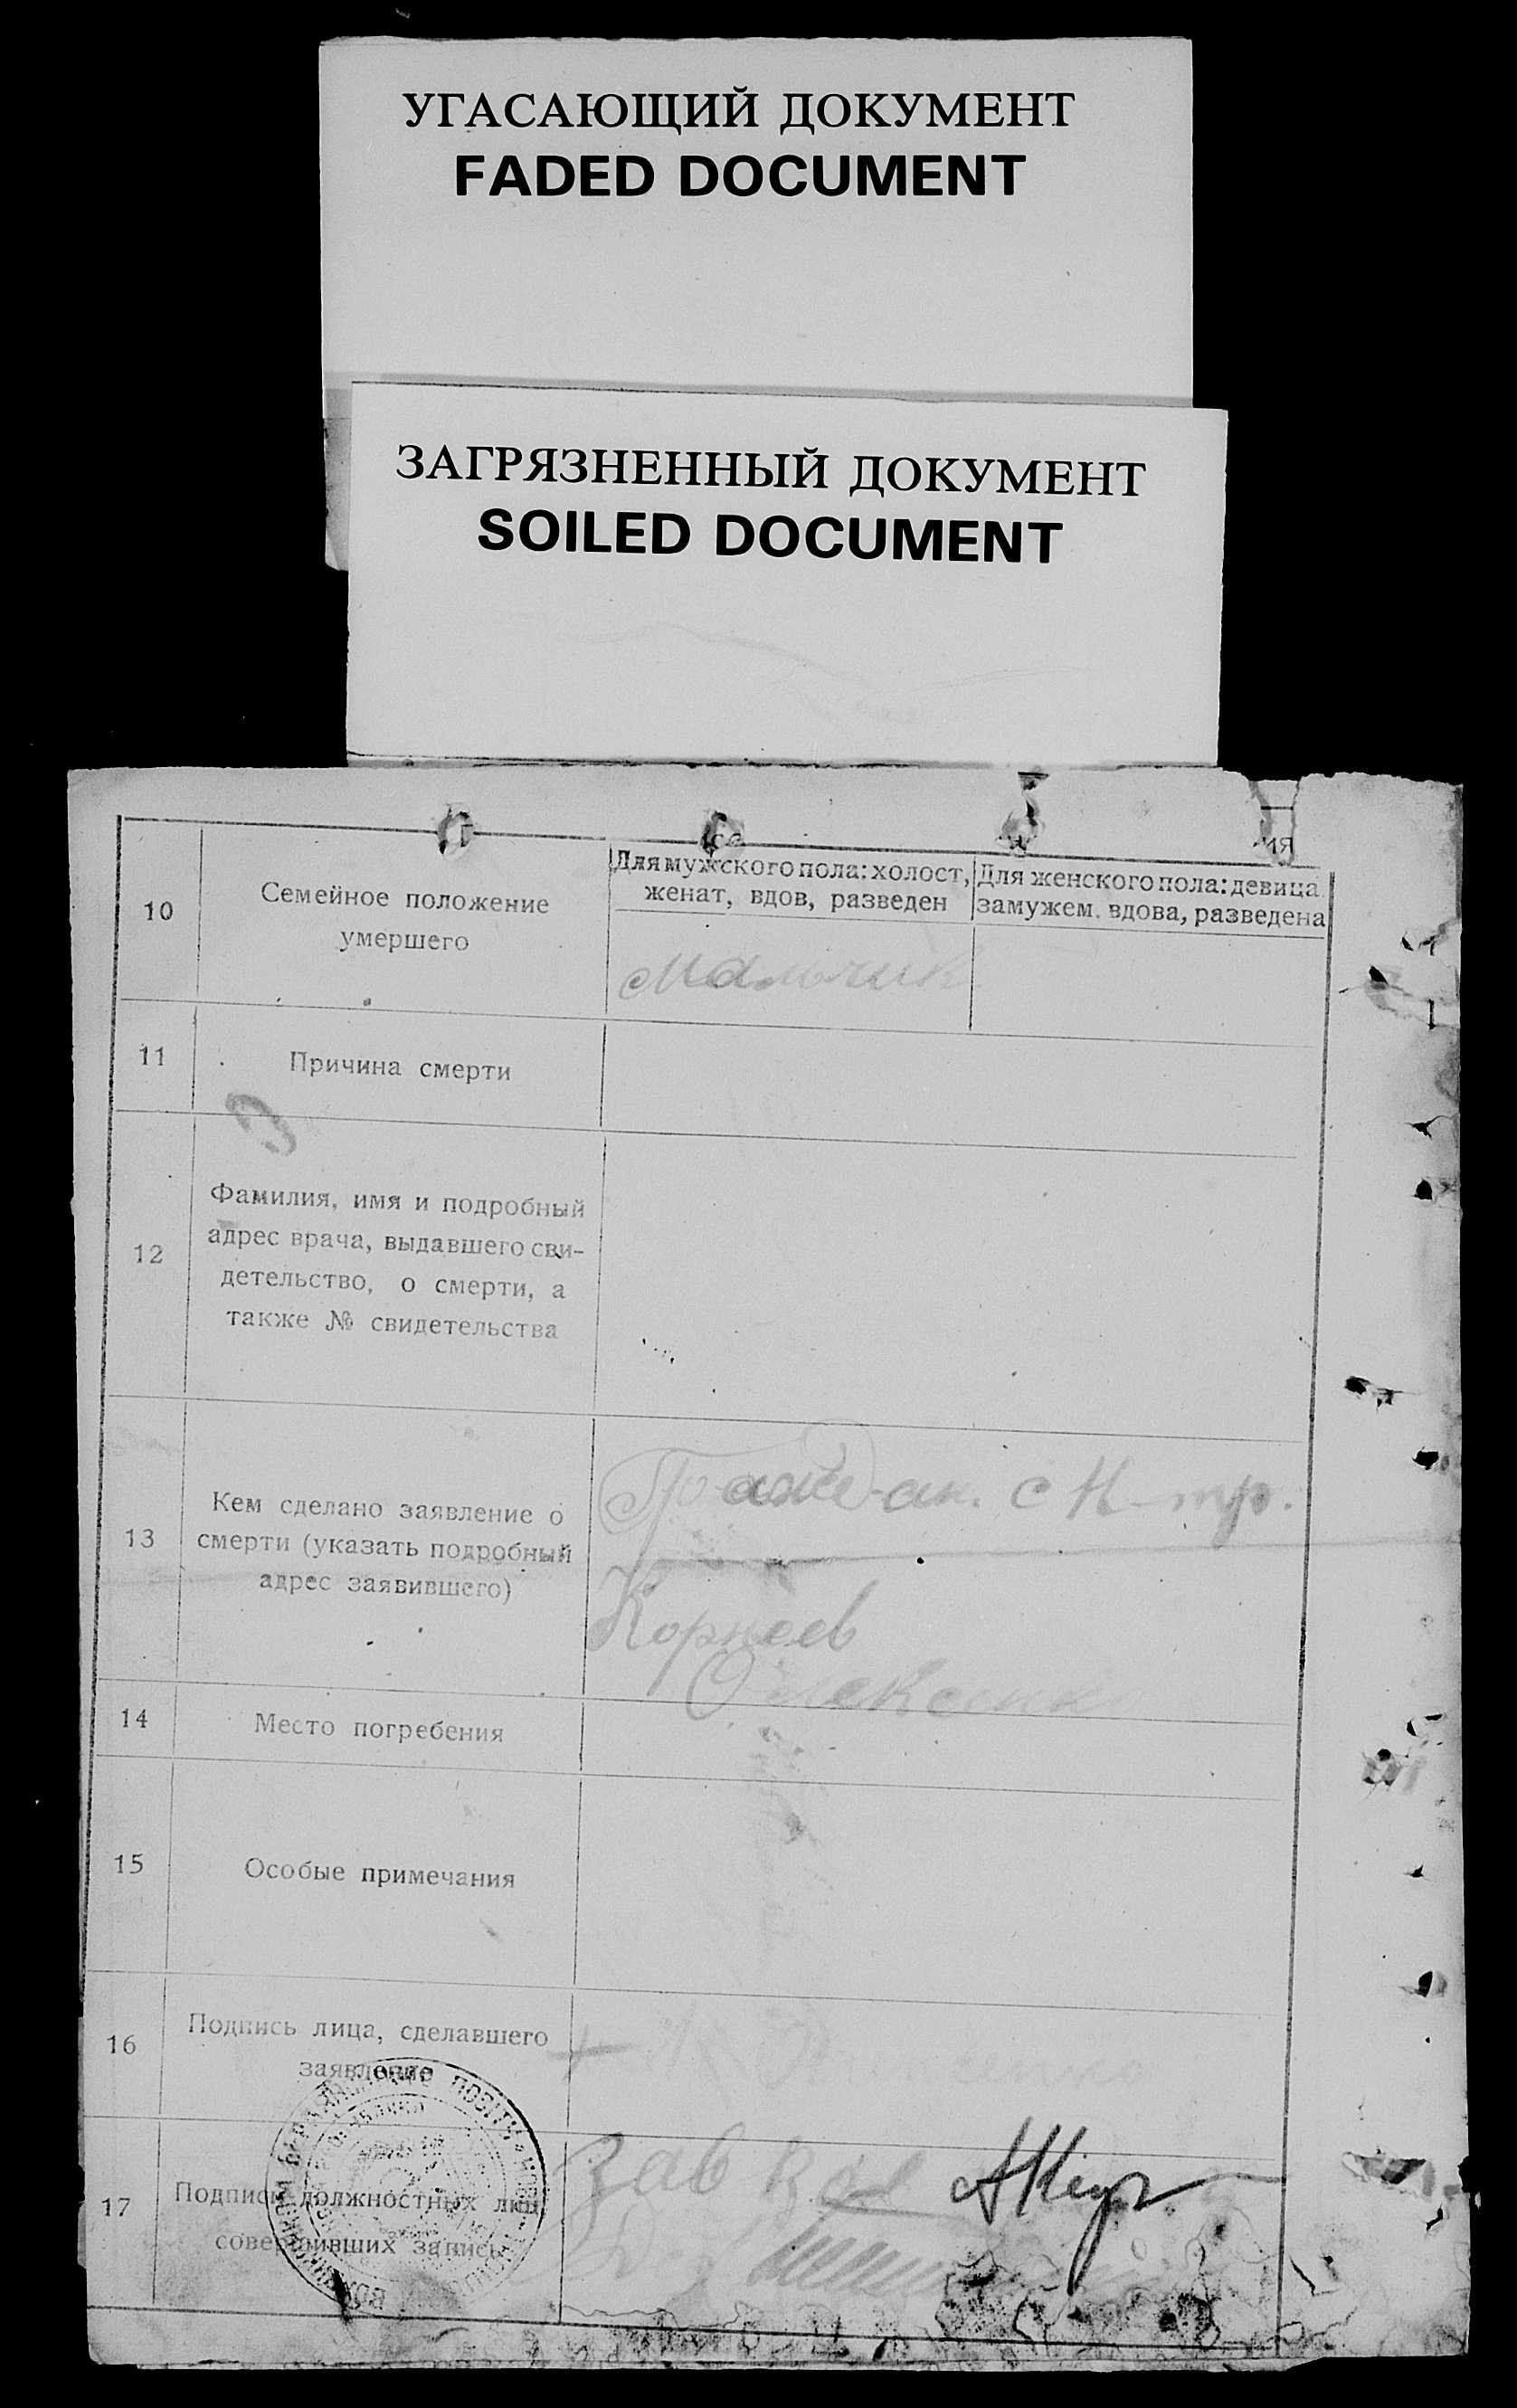 УГАСАЮЩИЙ ДОКУМЕНТ
FADED DOCUMENT
ЗАГРЯЗНЕННЫЙ ДОКУМЕНТ
SOILED DOCUMENT
10
Семейное положение
умершего
Для мужского пола: холост,
женат, вдов, разведен
Для женского пола: девица
замужем. вдова, разведена
Мальчик
11
Причина смерти
12
Фамилия, имя и подробный
адрес врача, выдавшего сви-
детельство, о смерти, а
также № свидетельства
13
Кем сделано заявление о
смерти (указать подробный
адрес заявившего)
с Н-тр.
Корнеев
14
Место погребения
15
Особые примечания
16
Подпись лица, сделавшего
заявление
17
Подписи должностных лиц
совершивших запись
Зав